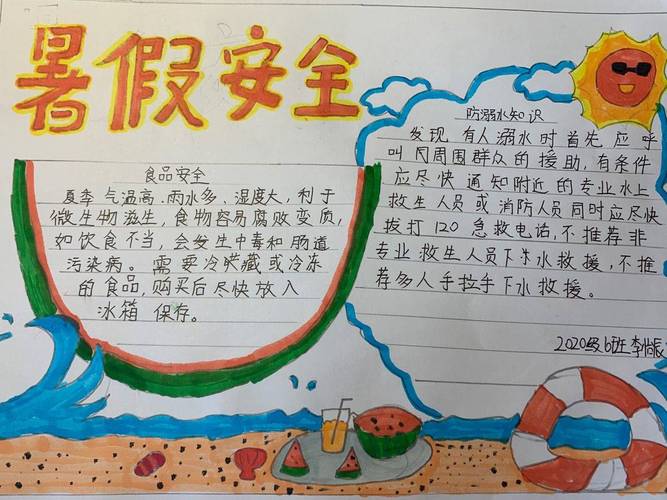 暑假安全
食品安全
夏季气温高、雨水多、湿度大，利于
微生物滋生，食物容易腐败变质，
如饮食不当，会发生中毒和肠道
污染病。需要冷贮藏或冷冻
的食品，购买后尽快放入
冰箱保存。
防溺水知识
发现有人溺水时首先应呼
叫周围群众的援助，有条件
应尽快通知附近的专业水上
救生人员或消防人员同时应尽快
拨打120急救电话，不推荐非
专业救生人员下水救援，不推
荐多人手拉手下水救援。
2020级6班李